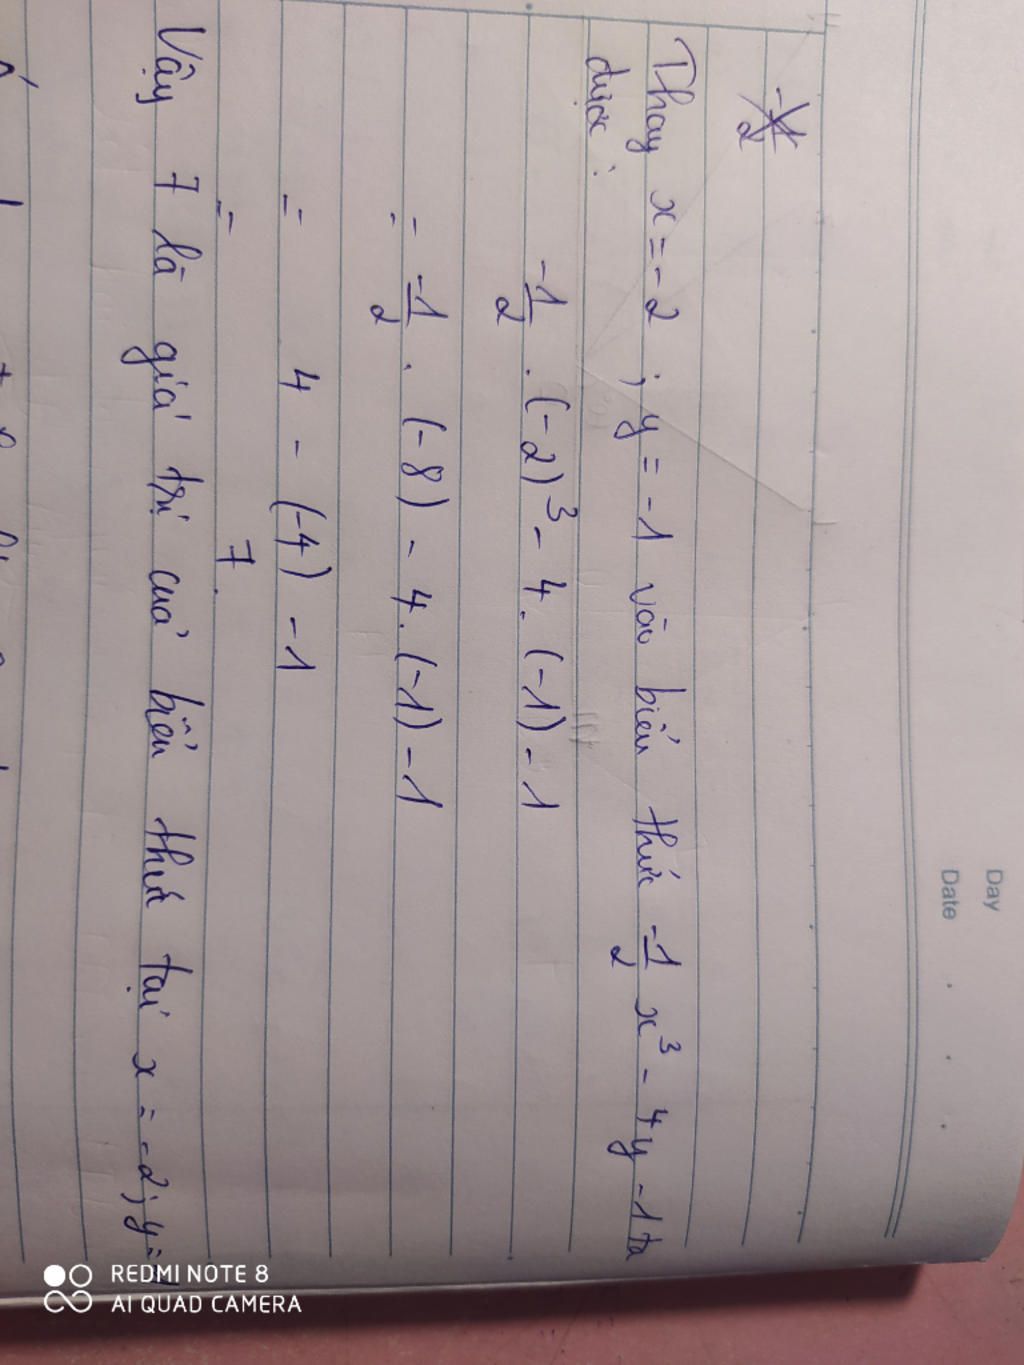 Day
Date
-1/2
Thay x = -2 ; y = -1 vào biểu thức -1/2 x³ - 4y - 1 ta
được :
-1/2 . (-2)³ - 4. (-1) - 1
= -1/2 . (-8) - 4. (-1) - 1
= 4 - (-4) - 1
= 7.
Vậy 7 là giá trị của biểu thức tại x = -2; y =
REDMI NOTE 8
AI QUAD CAMERA